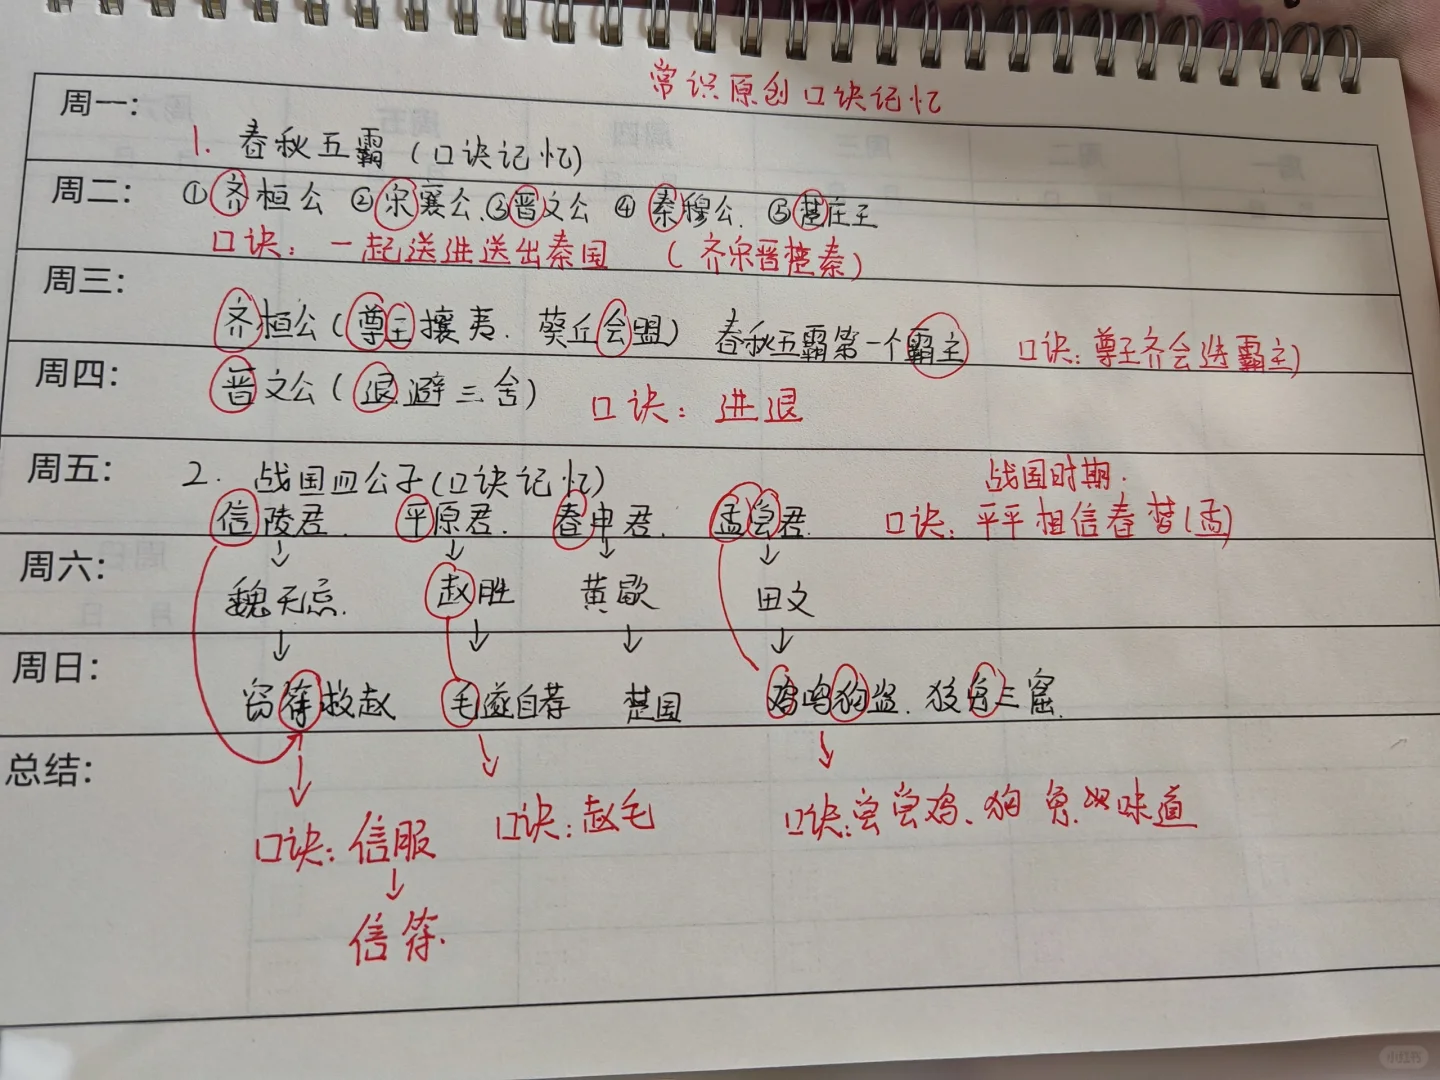 常识原创口诀记忆
周一：
1. 春秋五霸（口诀记忆)
周二： ①齐桓公 ②宋襄公、③晋文公 ④秦穆公、⑤楚庄王
口诀：一起送进送出秦国 （齐宋晋楚秦）
周三：
齐桓公（尊王攘夷、葵丘会盟） 春秋五霸第一个霸主 口诀：尊王齐会选霸主）
周四：
晋文公（退避三舍） 口诀：进退
周五： 2. 战国四公子(口诀记忆) 战国时期.
信陵君、 平原君、 春申君、 孟尝君. 口诀：平平相信春梦(孟)
周六：
魏无忌、 赵胜 黄歇 田文
周日：
窃符救赵 毛遂自荐 楚国 鸡鸣狗盗、狡兔三窟
总结：
口诀：信服 口诀：赵毛 口诀：尝尝鸡、狗 兔 味道
信符.
小红书